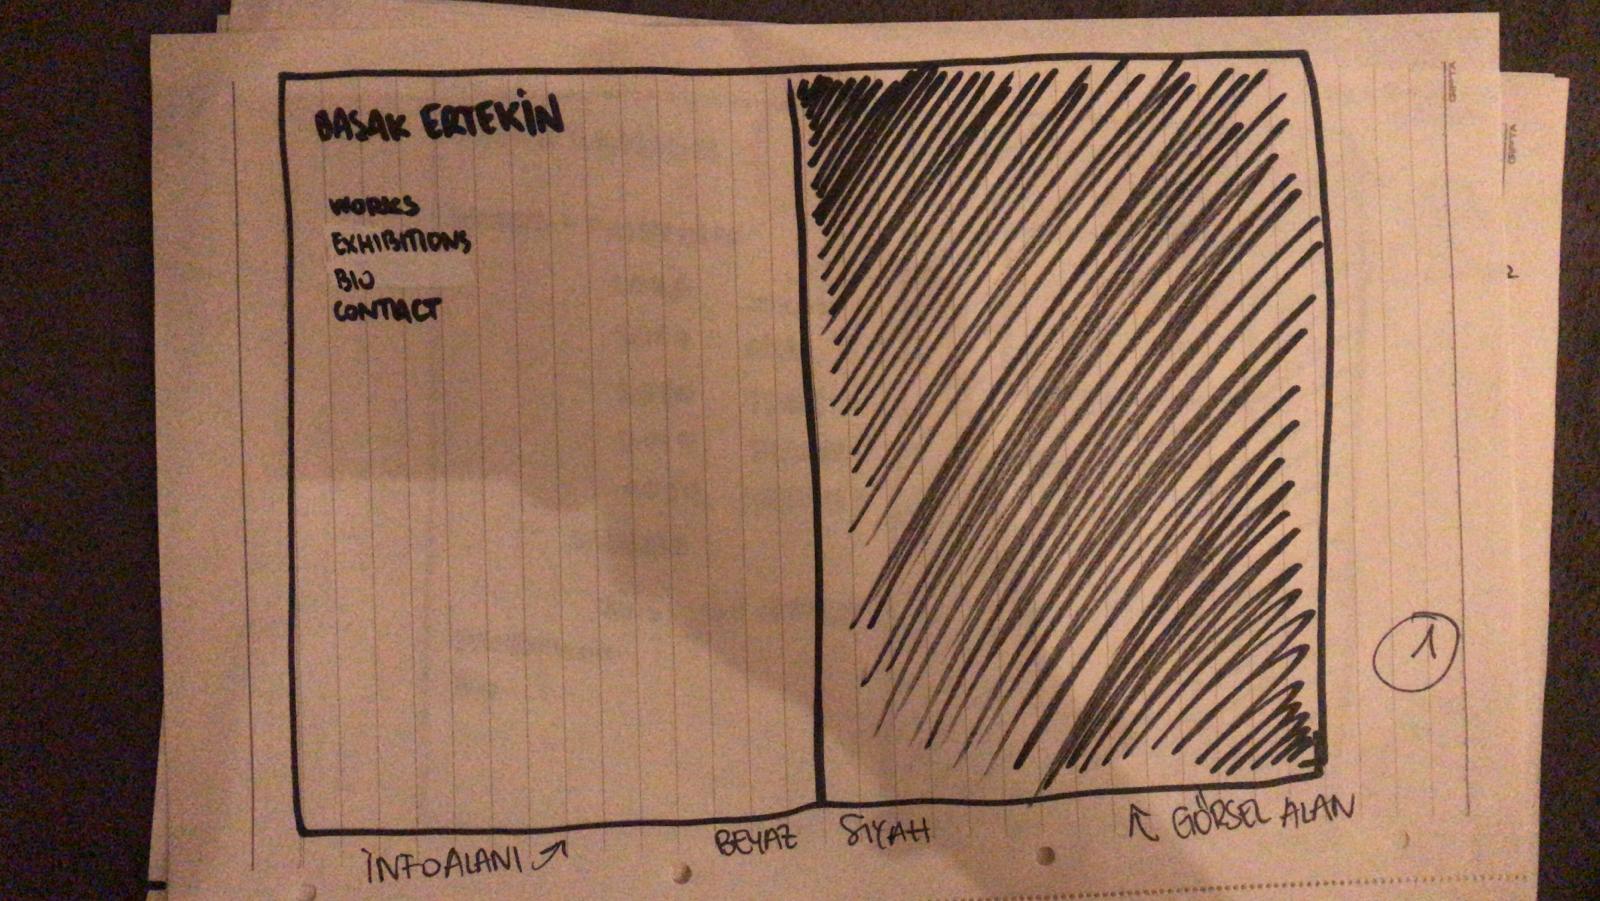 BAŞAK ERTEKİN
WORKS
EXHIBITIONS
BIO
CONTACT
İNFO ALANI
BEYAZ
SİYAH
GÖRSEL ALAN
1
2